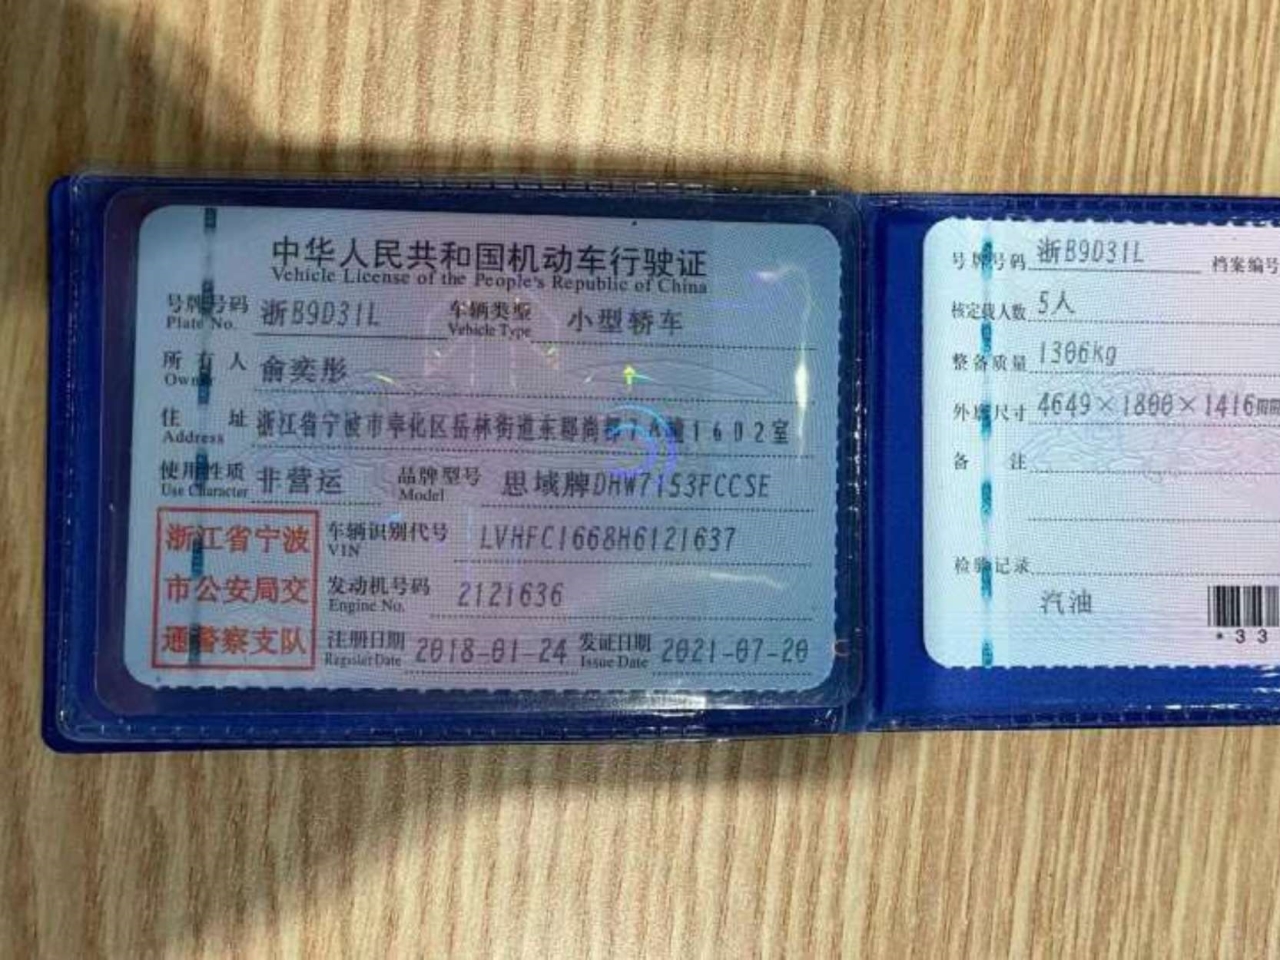 中华人民共和国机动车行驶证
Vehicle License of the People's Republic of China
号牌号码 浙B9D31L 车辆类型 小型轿车
Plate No. Vehicle Type
所有人 俞奕彤
Owner
住址 浙江省宁波市奉化区岳林街道东郡尚都 幢1602室
Address
使用性质 非营运 品牌型号 思域牌DHW7153FCCSE
Use Character Model
浙江省宁波
市公安局交
通警察支队
车辆识别代号 LVHFC1668H6121637
VIN
发动机号码 2121636
Engine No.
注册日期 2018-01-24 发证日期 2021-07-20
Register Date Issue Date
号牌号码 浙B9D31L 档案编号
核定载人数 5人
整备质量 1306kg
外廓尺寸 4649×1800×1416mm
备注
检验记录
汽油
*33